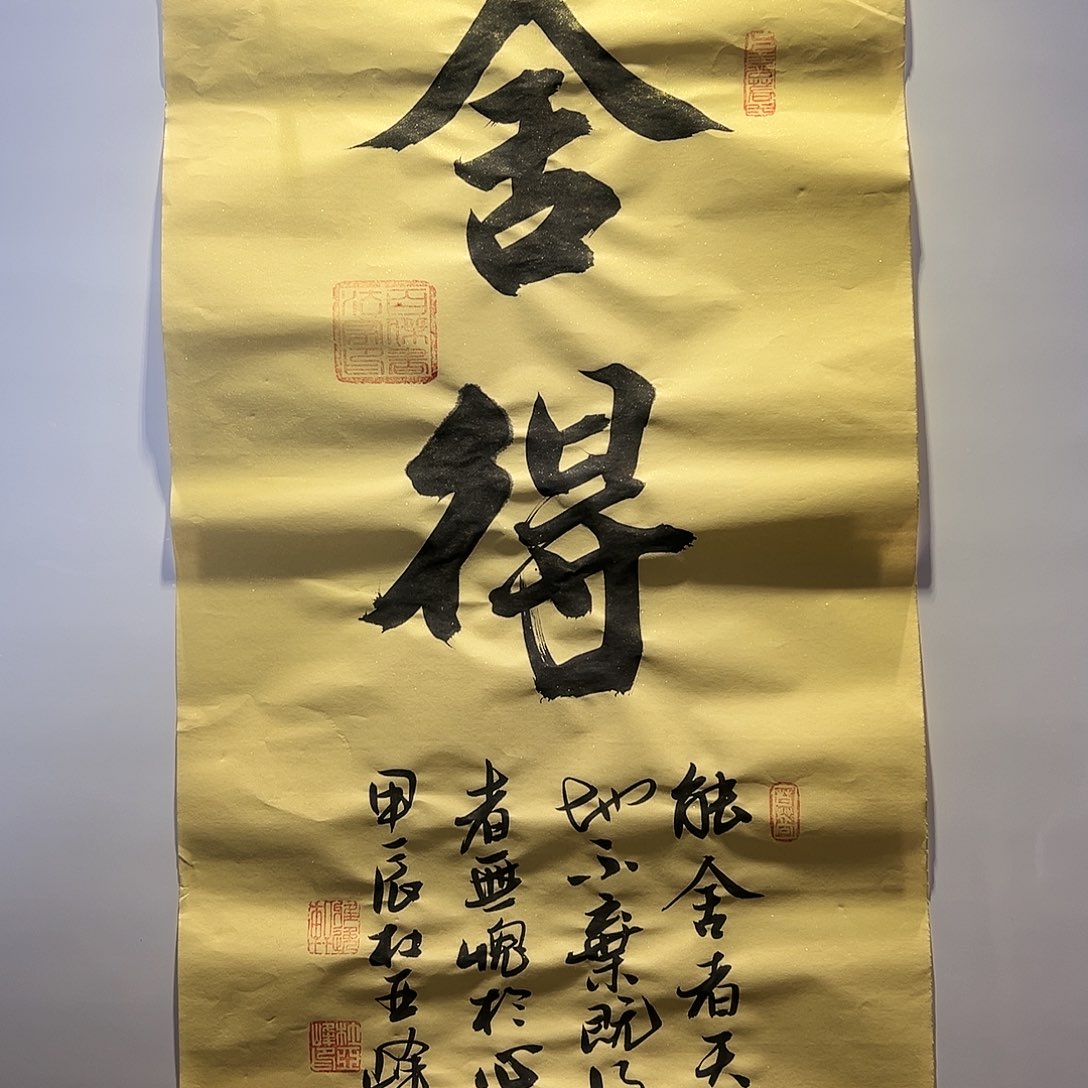 舍
得
能舍者天
地不棄既得
者無愧於心
甲辰杜亚峰